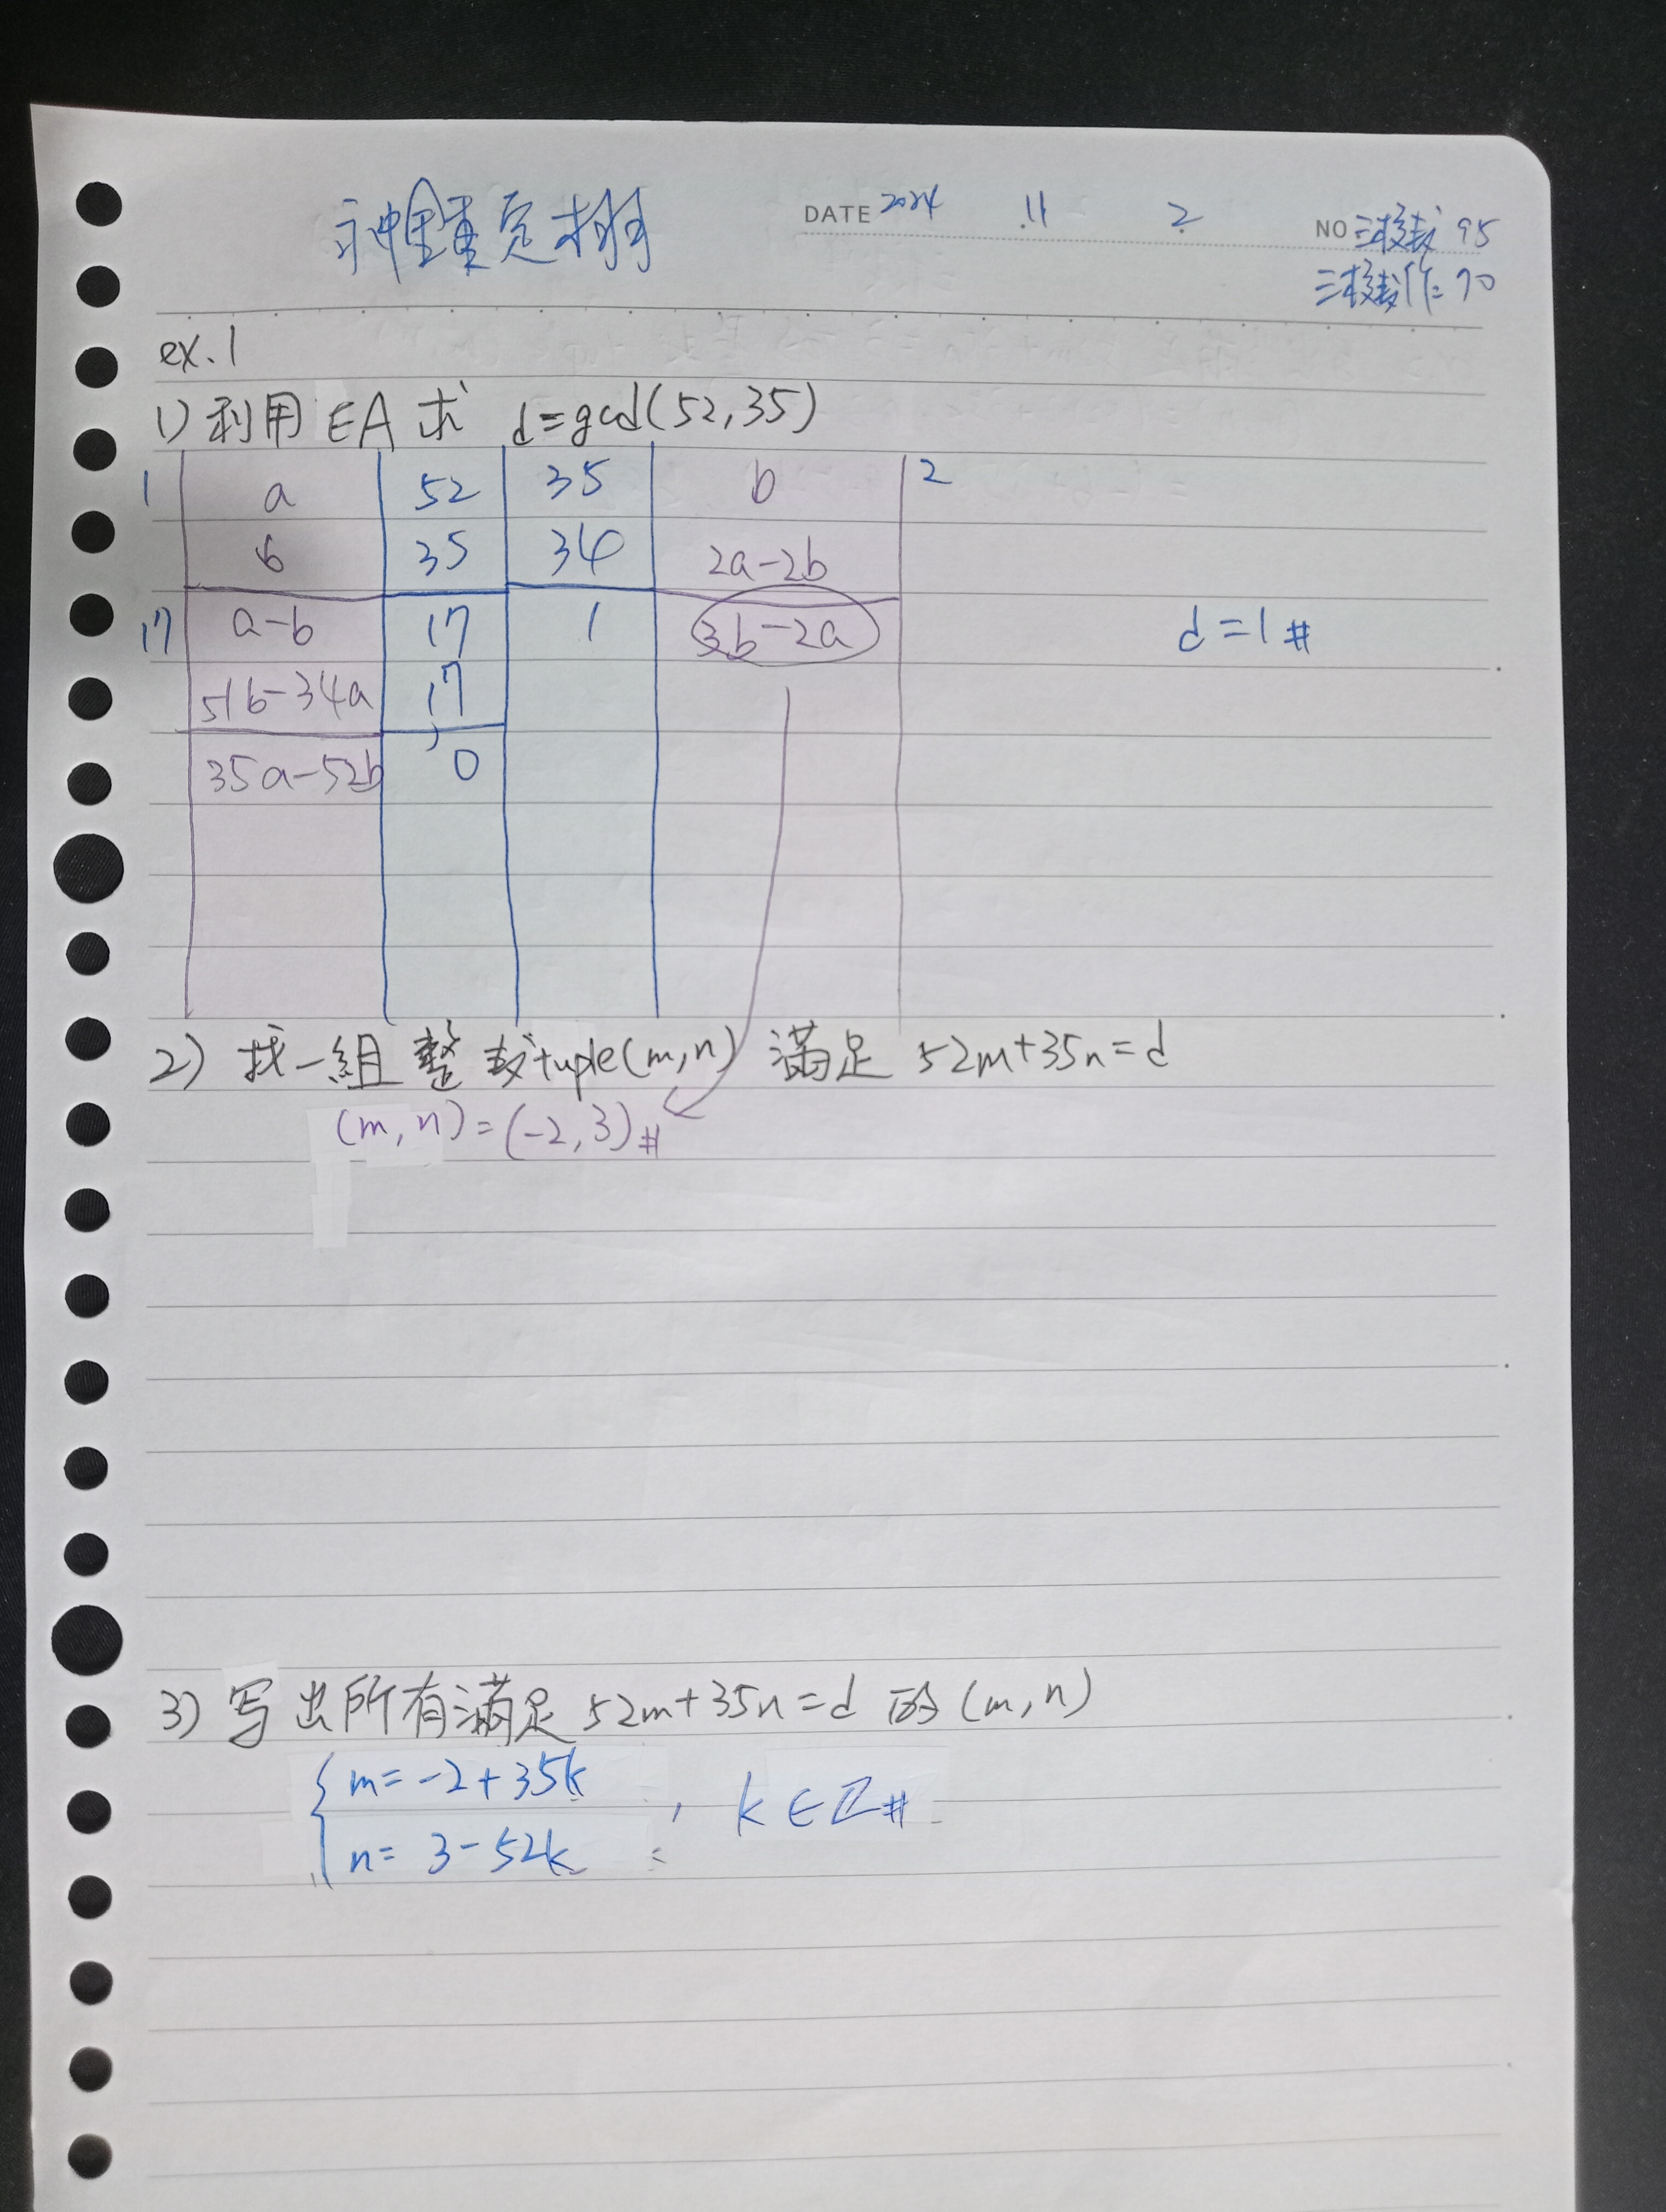 DATE 2024 11 2 NO 三校数 95
三校数作 70
ex. 1
1) 利用 EA 求 d=gcd(52,35)
1 a 52 35 b 2
b 35 34 2a-2b
17 a-b 17 1 3b-2a d=1#
51b-34a 17
35a-52b 0
2) 找一組整数tuple(m,n) 滿足 52m+35n=d
(m,n)=(-2,3)#
3) 写出所有滿足 52m+35n=d 的 (m,n)
m=-2+35k
n=3-52k , k∈ℤ#